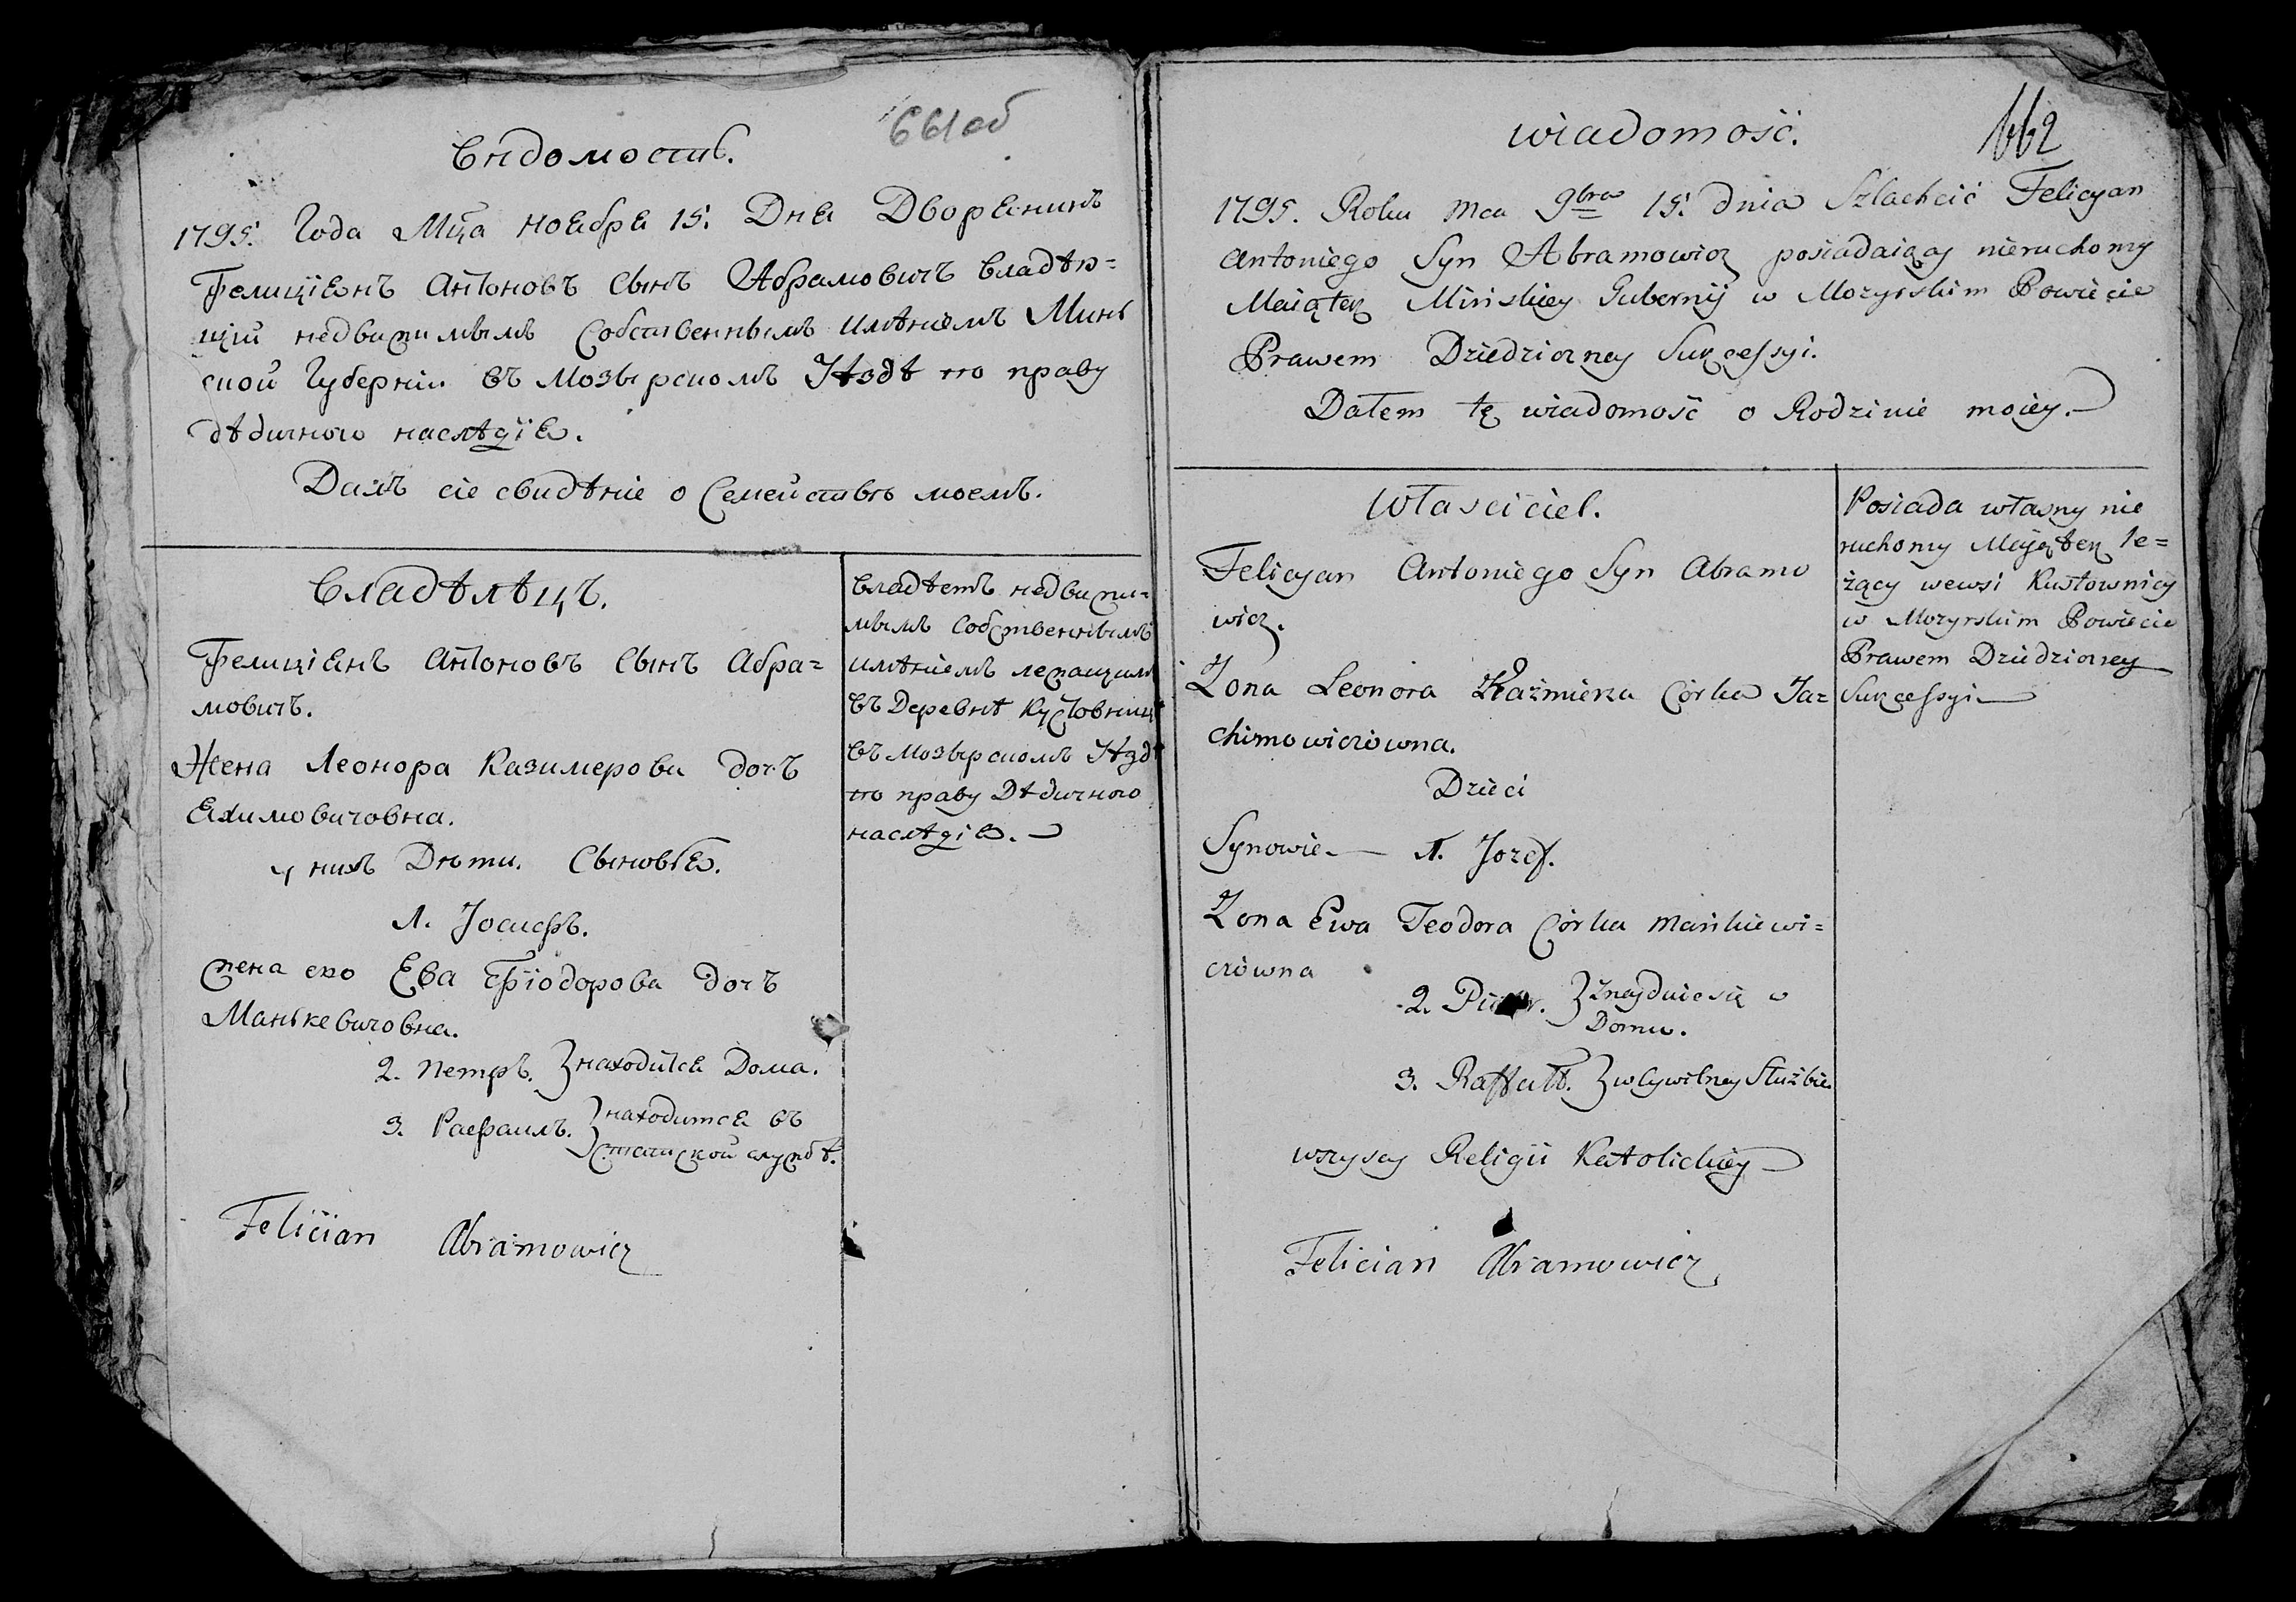 661 об
Вѣдомость.
1795. Года Мца ноября 15. Дня Дворянинъ
Фелиціянъ Антоновъ Сынъ Абрамовичъ владѣю=
щій недвижимымъ Собственнымъ имѣніемъ Минь
ской Губерніи въ мозырскомъ уѣздѣ по праву
дѣдичного наслѣдія.
Далъ сіе свидѣніе о Семействѣ моемъ.
Владѣлѣцъ.
Фелиціянъ Антоновъ Сынъ Абра=
мовичъ.
Жена Леонора Казимерова дочъ
Яхимовичовна.
у нихъ Дѣти. Сыновья.
1. Іосифъ.
жена его Ева Ѳіодорова дочъ
Манькевичовна.
2. Петръ. } находится Дома.
3. Рафаилъ. } находится въ
статской службѣ.
Felician Abramowicz
владѣетъ недвижи=
мымъ собственнымъ
имѣніемъ лежащимъ
въ Деревнѣ Кустовницѣ
въ мозырскомъ уѣздѣ
по праву Дѣдичного
наслѣдія.
662
wiadomość.
1795. Roku mca 9bra 15. dnia Szlachcić Felicyan
Antoniego Syn Abramowicz posiadaiący nieruchomy
Maiątek Mińskiey Gubernij w Mozyrskim Powiecie
Prawem Dziedziczney Sukcessyi.
Dałem tę wiadomość o Rodzinie moiey.
Właściciel.
Felicyan Antoniego Syn Abramo
wicz.
Zona Leonora Kaźmierza Córka Ja=
chimowiczówna.
Dzieci
Synowie 1. Jozef.
Zona Ewa Teodora Córka Mańkiewi=
czówna
2. Piotr. } Znayduie się w
Domu.
3. Raffałł. } w Cywilney Służbie
wszyscy Religii Katolickiey
Felician Abramowicz
Posiada własny nie
ruchomy Maiątek le=
żący wewsi Kustownicy
w Mozyrskim Powiecie
Prawem Dziedziczney
Sukcessyi